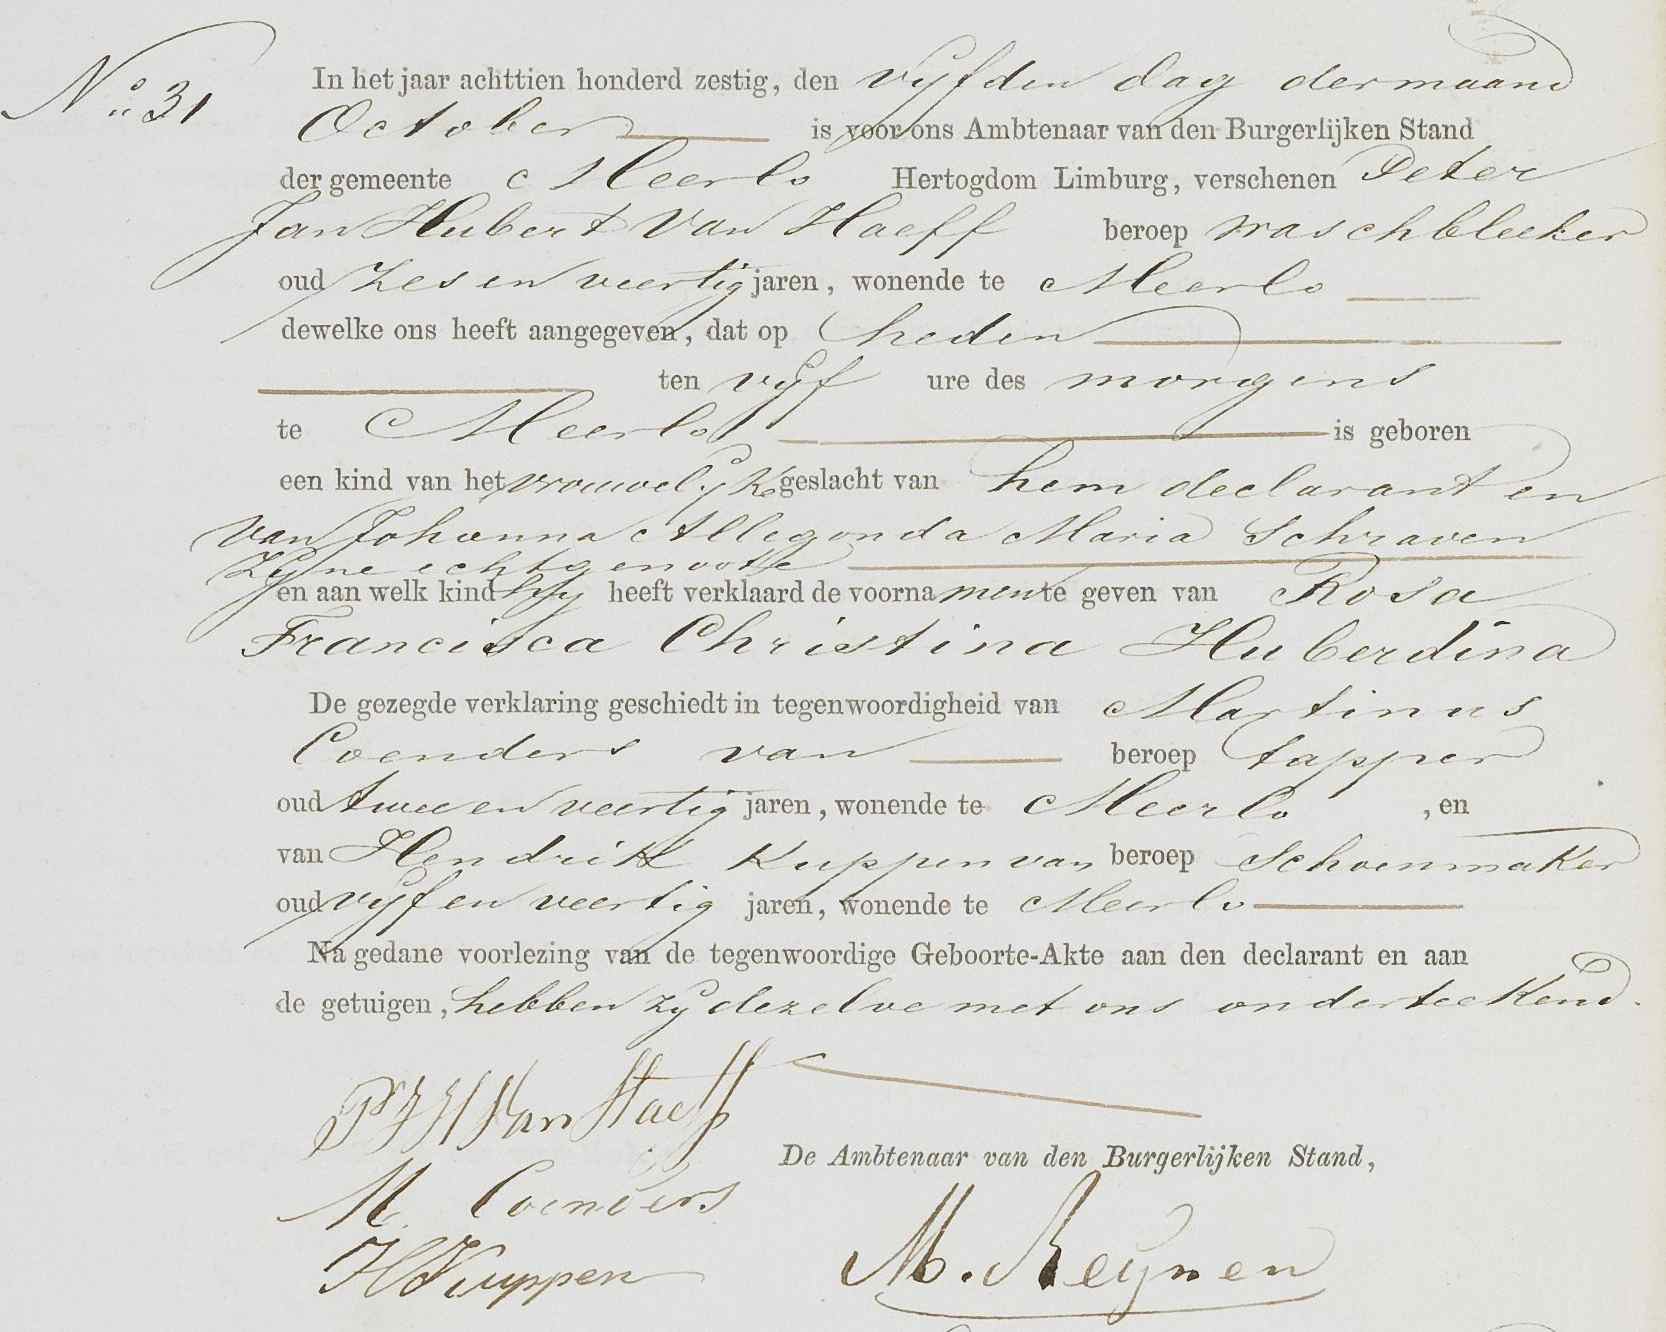 No 31
In het jaar achttien honderd zestig, den vyfden dag der maand
October is voor ons Ambtenaar van den Burgerlijken Stand
der gemeente Meerlo Hertogdom Limburg, verschenen Peter
Jan Hubert van Haeff beroep waschbleeker
oud zes en veertig jaren, wonende te Meerlo
dewelke ons heeft aangegeven, dat op heden
ten vyf ure des morgens
te Meerlo is geboren
een kind van het vrouwelyke geslacht van hem declarant en
van Johanna Allegonda Maria Schraven
zyne echtgenoote
en aan welk kind hy heeft verklaard de voornamen te geven van Rosa
Francisca Christina Huberdina
De gezegde verklaring geschiedt in tegenwoordigheid van Martinus
Coenders van beroep tapper
oud twee en veertig jaren, wonende te Meerlo, en
van Hendrik Kuppen van beroep Schoenmaker
oud vyf en veertig jaren, wonende te Meerlo
Na gedane voorlezing van de tegenwoordige Geboorte-Akte aan den declarant en aan
de getuigen, hebben zy dezelve met ons onderteekend.
P J H Van Haeff
De Ambtenaar van den Burgerlijken Stand,
M. Coenders
H Kuppen
M. Reynen